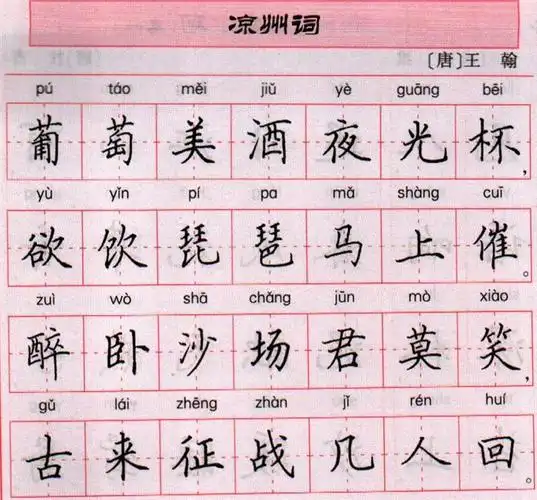 凉州词
〔唐〕王 翰
pú táo měi jiǔ yè guāng bēi
葡萄美酒夜光杯，
yù yǐn pí pa mǎ shàng cuī
欲饮琵琶马上催。
zuì wò shā chǎng jūn mò xiào
醉卧沙场君莫笑，
gǔ lái zhēng zhàn jǐ rén huí
古来征战几人回。